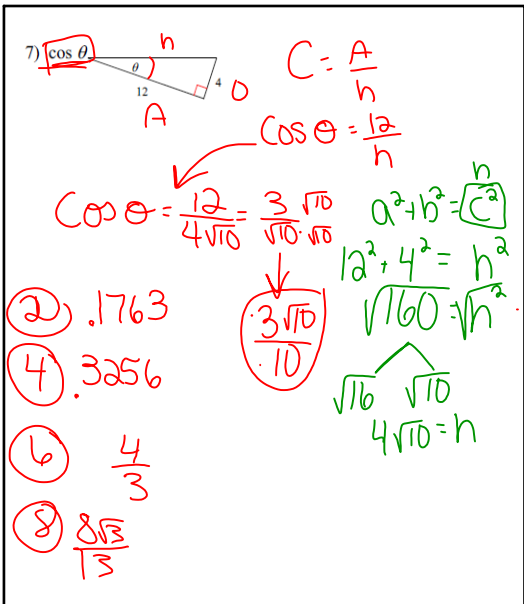 7) cos θ
h
θ
12
4
A
O
C = A/h
Cos θ = 12/h
Cos θ = 12/4√10 = 3/√10 · √10/√10
3√10/10
a² + b² = c²
h
12² + 4² = h²
√160 = √h²
√16 √10
4√10 = h
2) .1763
4) .3256
6 4/3
8 8√3/13